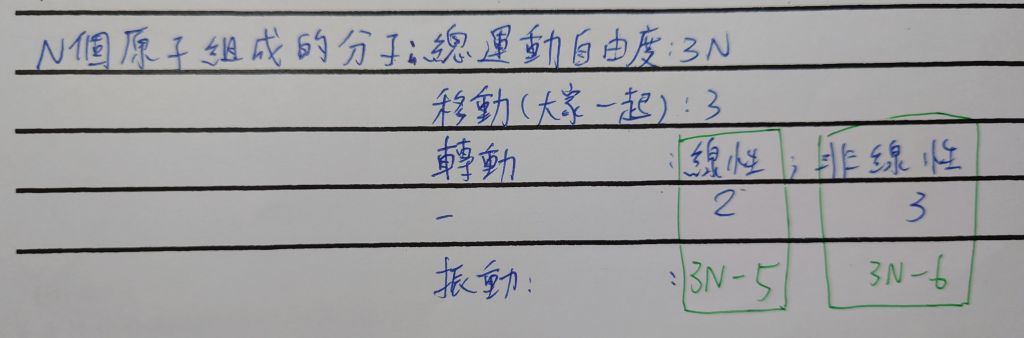 N個原子組成的分子:總運動自由度:3N
移動(大家一起):3
轉動 :線性;非線性
- 2 3
振動: :3N-5 3N-6